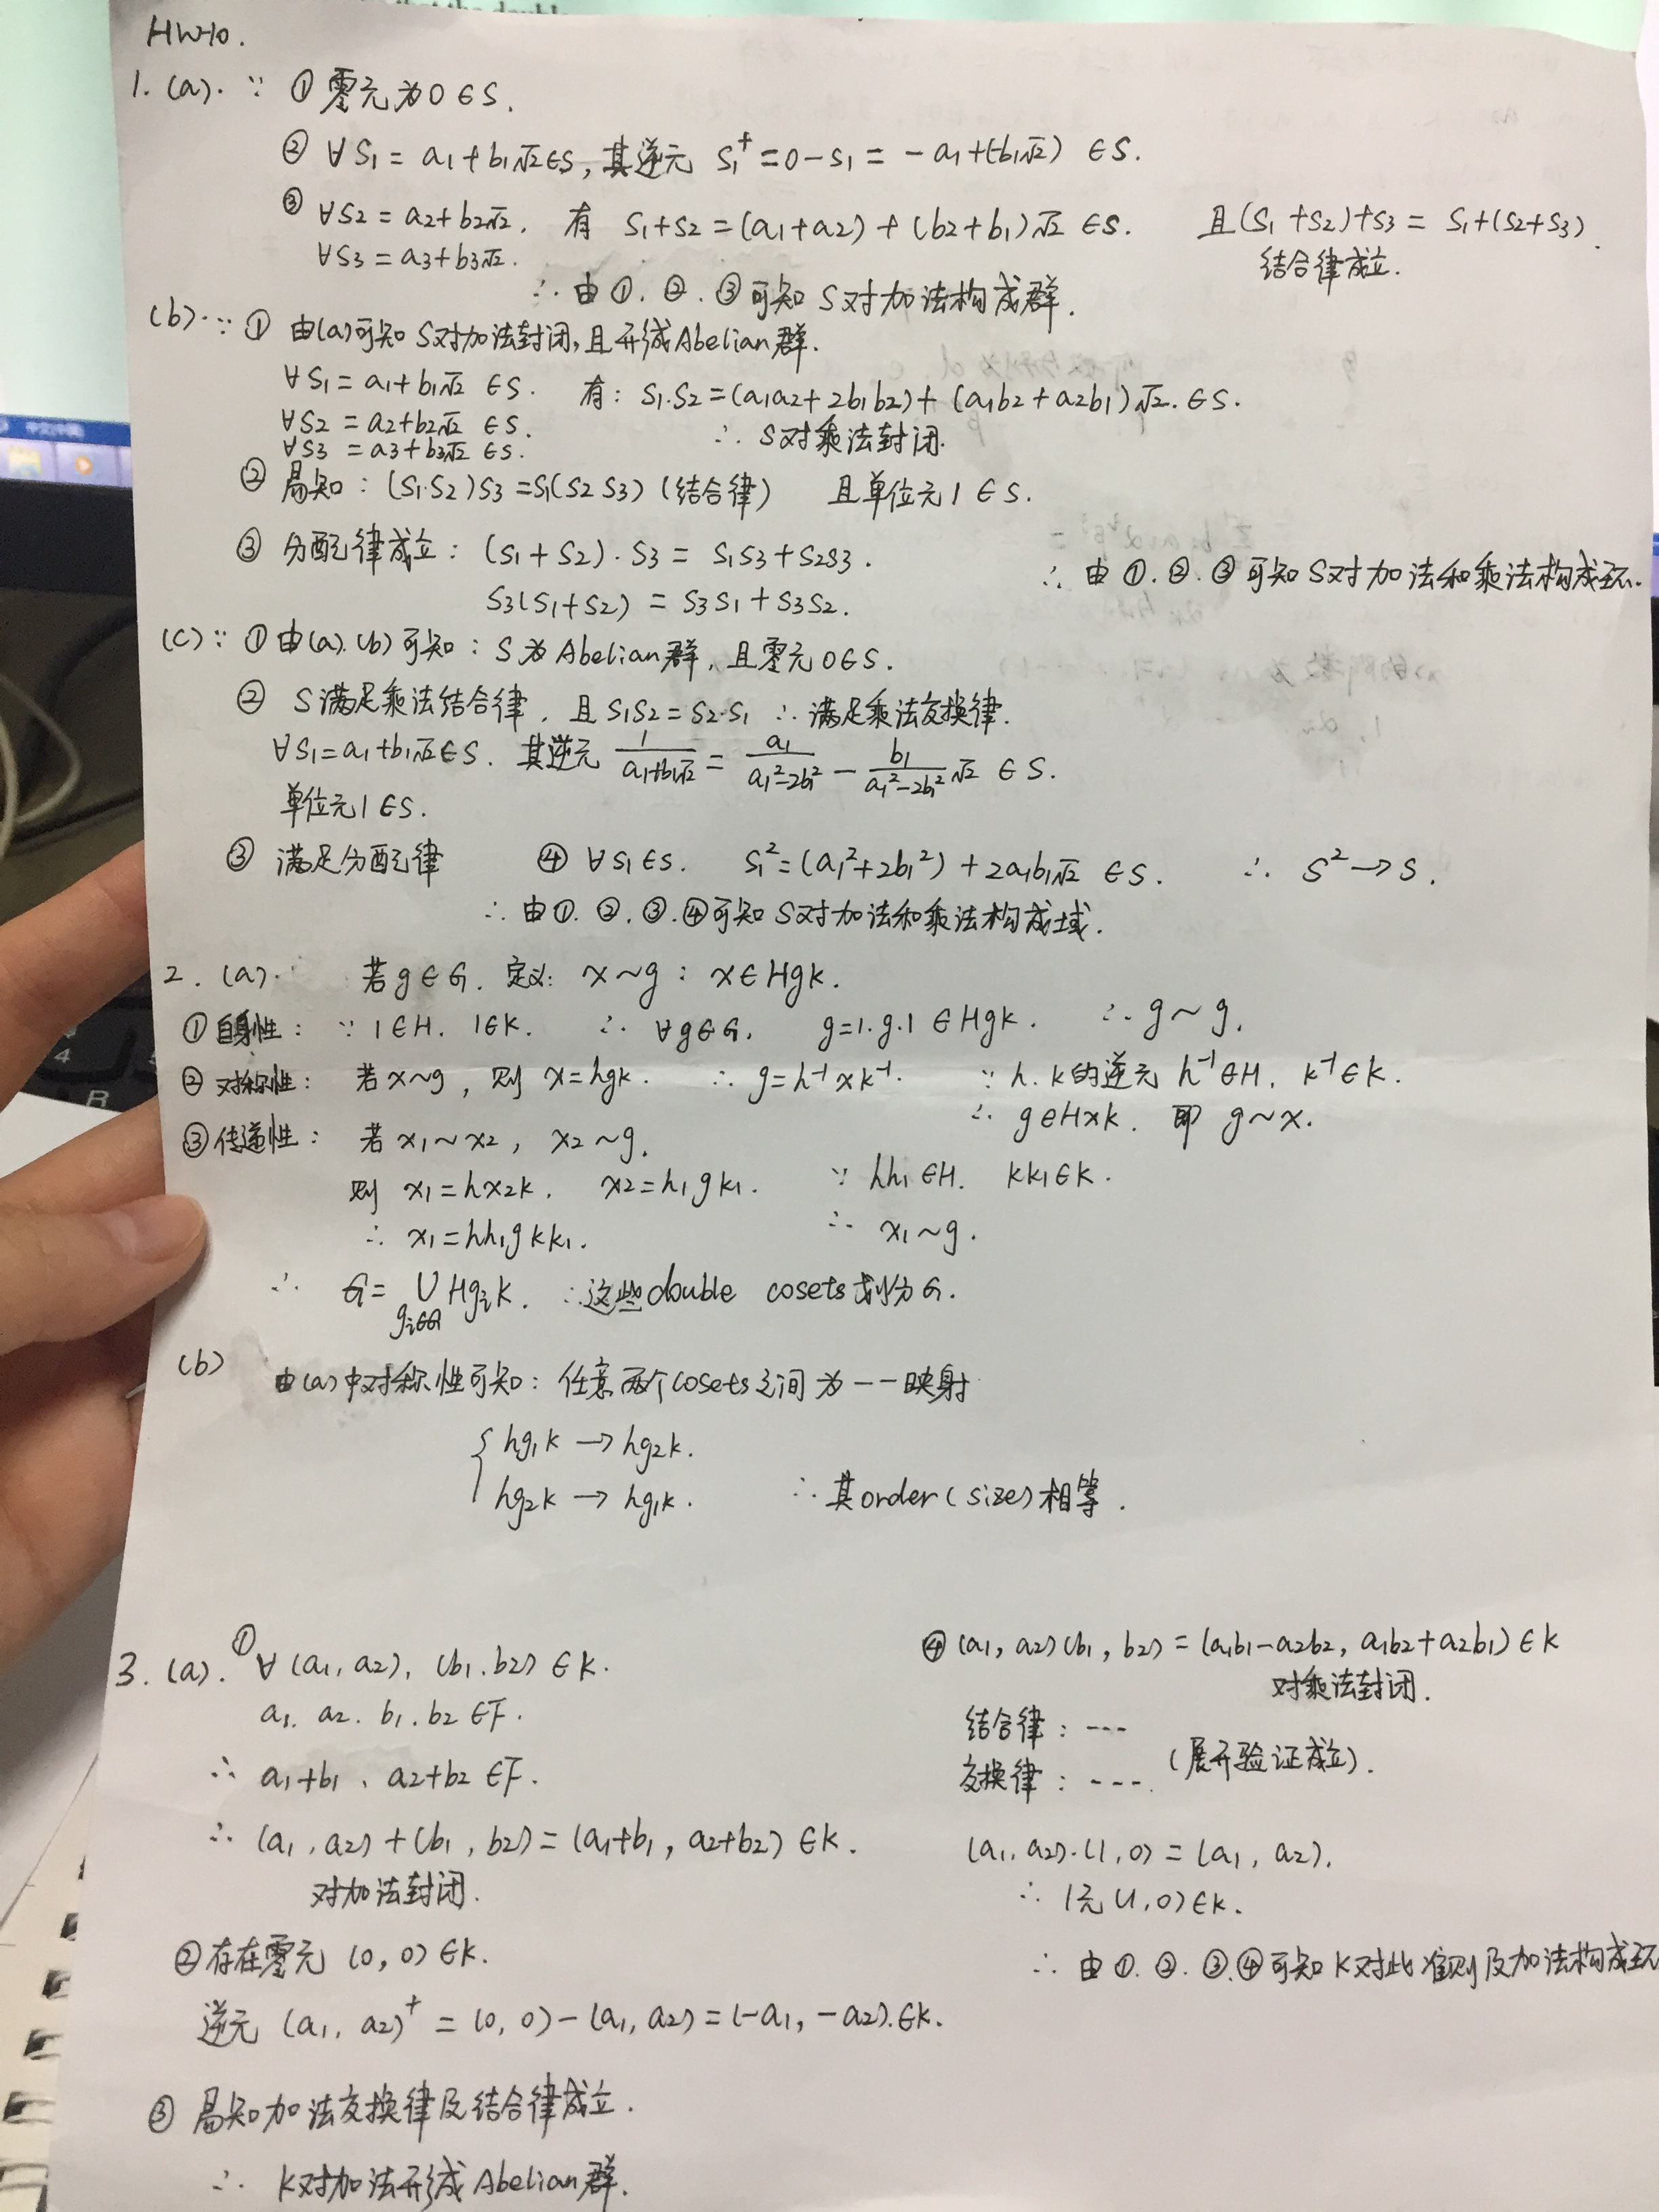 HW10.
1. (a). ∵ ① 零元为0∈S.
② ∀S1 = a1+b1√2∈S, 其逆元 S1⁺ = 0-S1 = -a1+(-b1√2) ∈S.
③ ∀S2 = a2+b2√2. 有 S1+S2 = (a1+a2) + (b2+b1)√2 ∈S. 且(S1+S2)+S3 = S1+(S2+S3).
∀S3 = a3+b3√2. 结合律成立.
∴ 由①.②.③可知 S对加法构成群.
(b) ∵ ① 由(a)可知 S对加法封闭, 且形成Abelian群.
∀S1 = a1+b1√2 ∈S. 有: S1.S2 = (a1a2+2b1b2)+(a1b2+a2b1)√2. ∈S.
∀S2 = a2+b2√2 ∈S. ∴ S对乘法封闭.
∀S3 = a3+b3√2 ∈S.
② 易知: (S1.S2)S3 = S1(S2 S3) (结合律) 且单位元1∈S.
③ 分配律成立: (S1+S2).S3 = S1S3+S2S3.
∴ 由①.②.③可知S对加法和乘法构成环.
S3(S1+S2) = S3S1+S3S2.
(c) ∵ ①由(a).(b)可知: S为Abelian群, 且零元0∈S.
② S满足乘法结合律, 且S1S2=S2.S1 ∴ 满足乘法交换律.
∀S1=a1+b1√2∈S. 其逆元 1/(a1+b1√2) = a1/(a1²-2b1²) - b1/(a1²-2b1²)√2 ∈S.
单位元1∈S.
③ 满足分配律 ④ ∀S1∈S. S1²=(a1²+2b1²)+2a1b1√2 ∈S. ∴ S²→S.
∴ 由①.②.③.④可知 S对加法和乘法构成域.
2. (a). 若g∈G. 定义: x~g: x∈HgK.
① 自身性: ∵ 1∈H. 1∈K. ∴ ∀g∈G. g=1.g.1∈HgK. ∴ g~g.
② 对称性: 若x~g, 则 x=hgk. ∴ g=h⁻¹xk⁻¹. ∵ h.k的逆元 h⁻¹∈H. k⁻¹∈K.
∴ g∈HxK. 即 g~x.
③ 传递性: 若 x1~x2, x2~g.
则 x1=hx2k. x2=h1gk1. ∵ hh1∈H. kk1∈K.
∴ x1=hh1gkk1. ∴ x1~g.
∴ G= ∪ HgiK. ∴这些double cosets划分G.
gi∈G
(b) 由(a)中对称性可知: 任意两个cosets之间为一一映射
{ hg1k → hg2k.
hg2k → hg1k. ∴ 其order(size)相等.
3. (a). ① ∀(a1,a2), (b1.b2)∈K.
a1. a2. b1. b2∈F.
∴ a1+b1、a2+b2∈F.
∴ (a1,a2)+(b1,b2)=(a1+b1,a2+b2)∈K.
对加法封闭.
② 存在零元 (0,0)∈K.
逆元 (a1,a2)⁺ = (0,0)-(a1,a2)=(-a1,-a2).∈K.
③ 易知加法交换律及结合律成立.
∴ K对加法形成Abelian群.
④ (a1,a2)(b1,b2)=(a1b1-a2b2,a1b2+a2b1)∈K
对乘法封闭.
结合律: ---
(展开验证成立).
交换律: ---.
(a1,a2).(1,0)=(a1,a2).
∴ 1元(1,0)∈K.
∴ 由①.②.③.④可知K对此准则及加法构成环